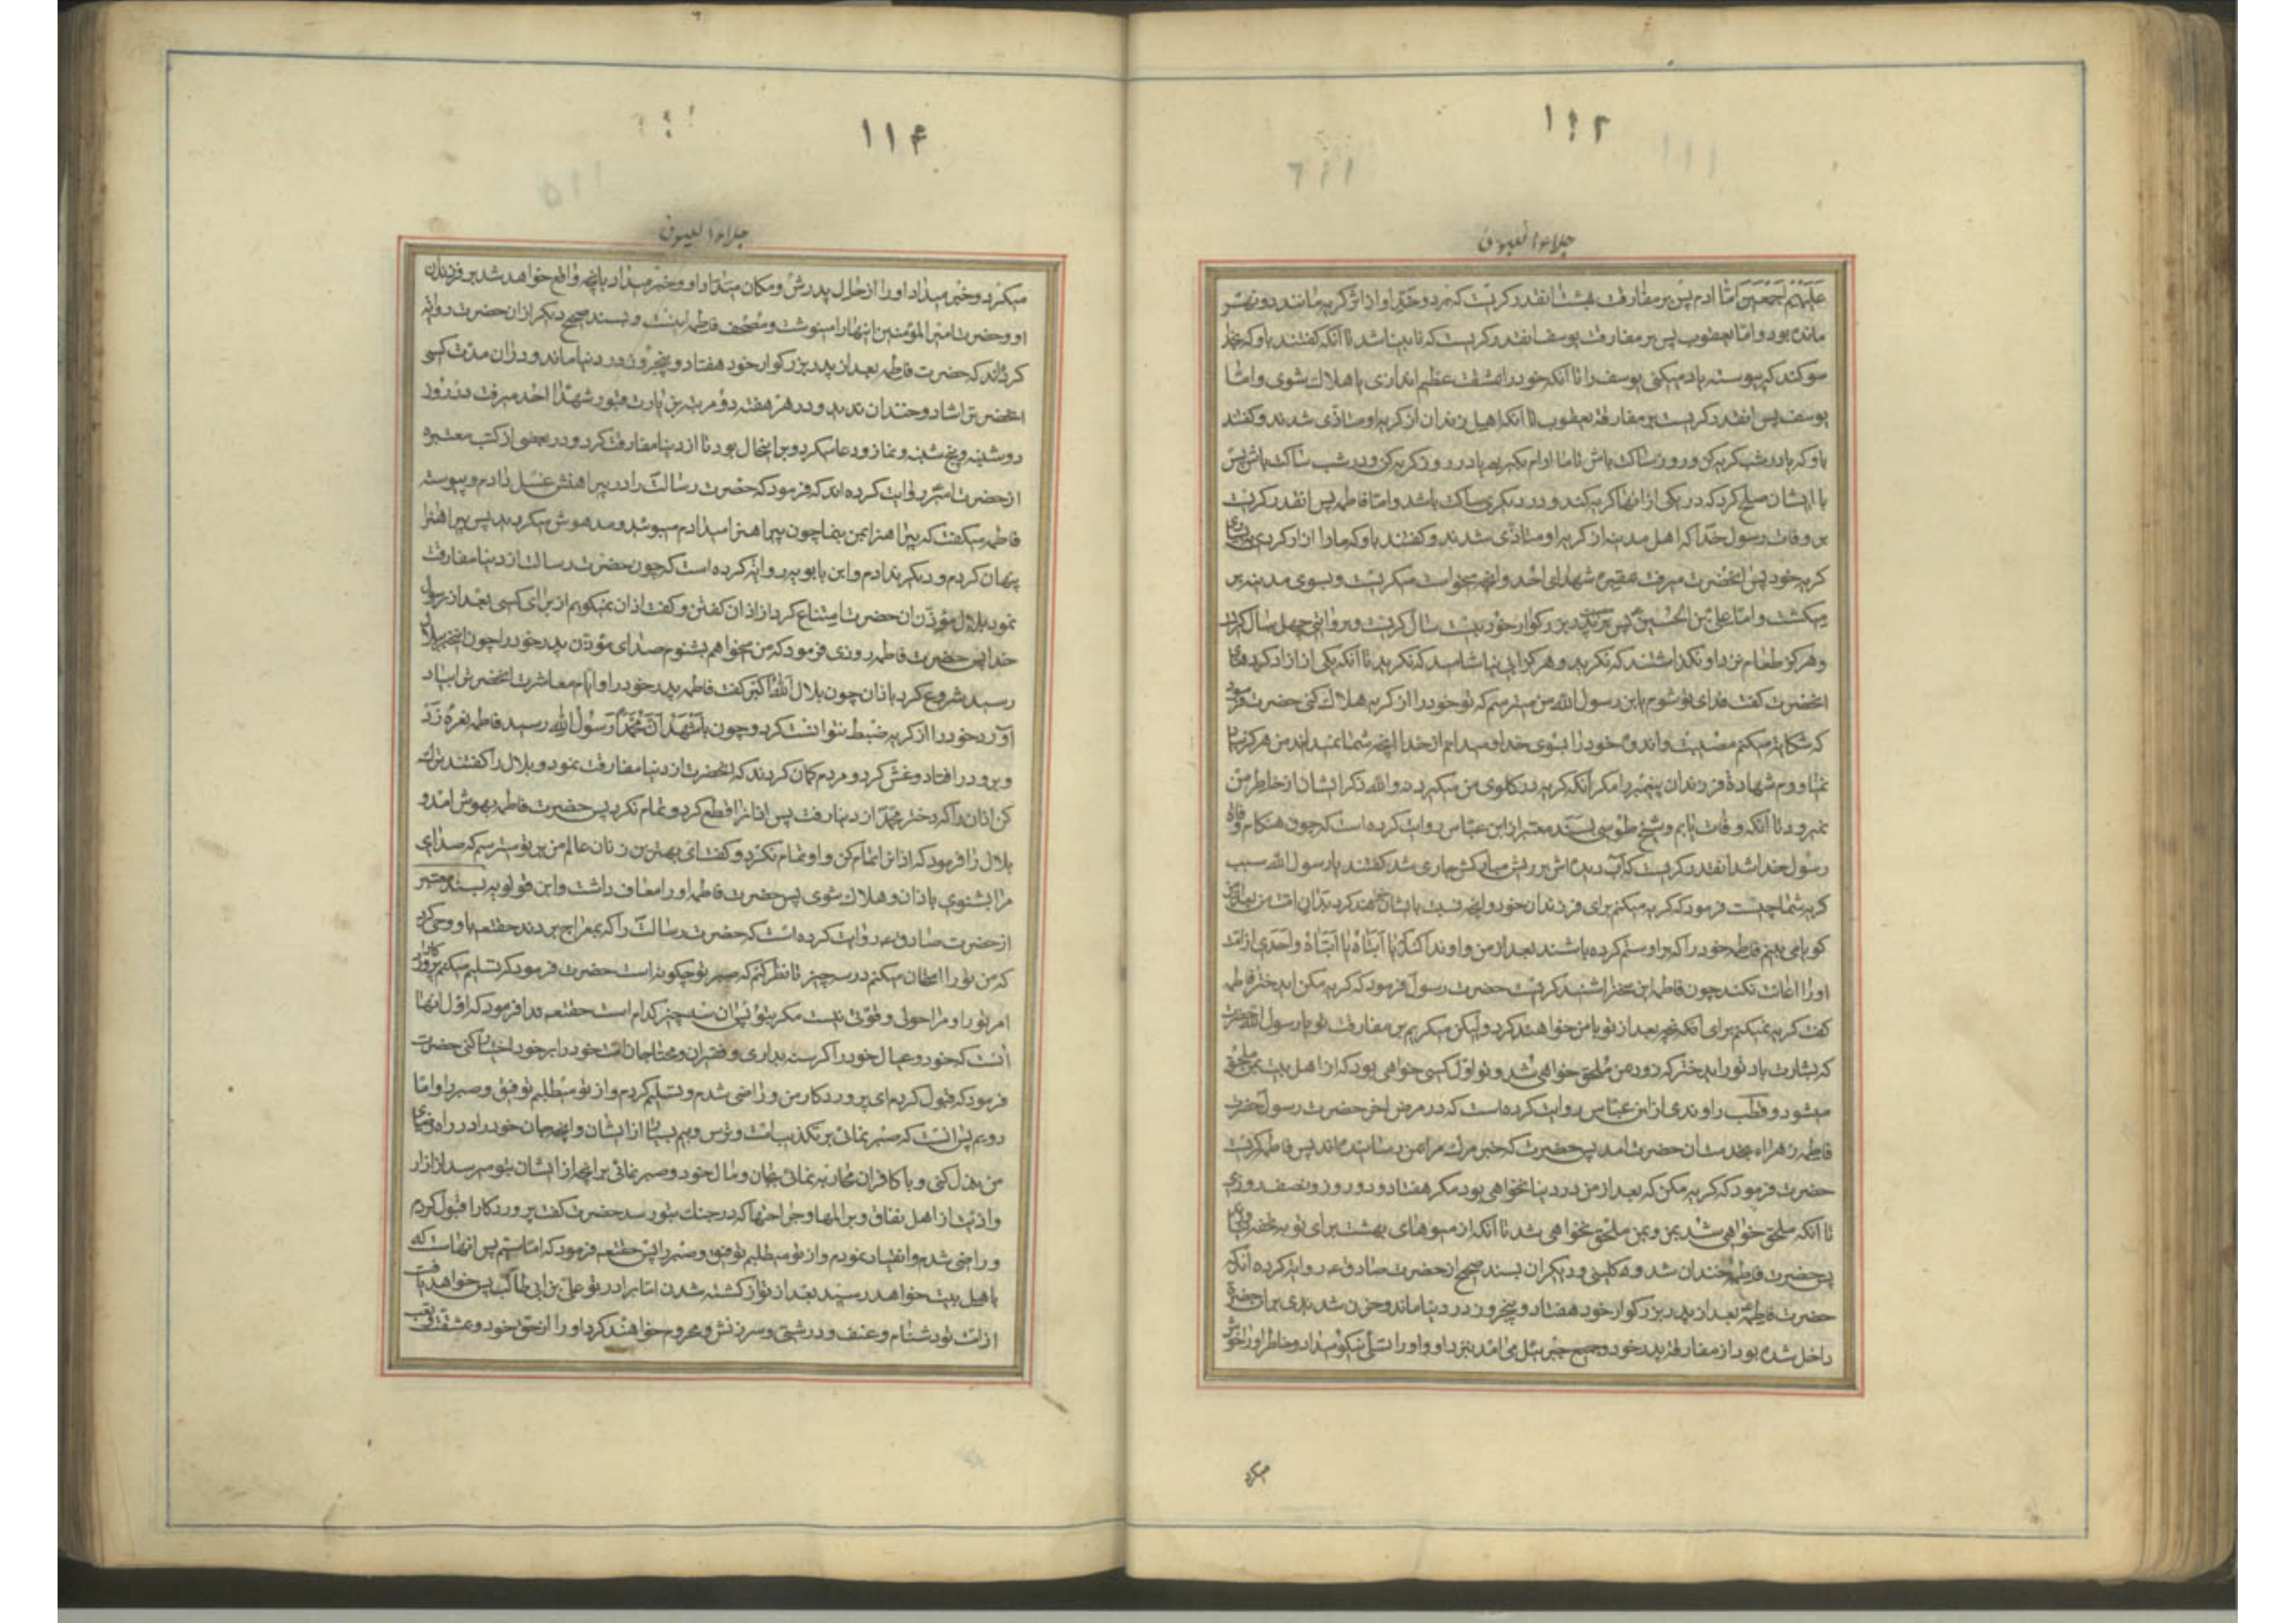 ۱۱۲
جلاء العیون
علیهم اجمعین اما ادم پس بر مفارقت بهشت انقدر کریست که بر دو خدّ او از اثر کریه مانند دو نهر
مانده بود و امّا یعقوب پس بر مفارقت یوسف انقدر کریست که نابینا شد تا آنکه کفتند باو که بخدا
سوکند که پیوسته یاد میکنی یوسف را تا آنکه خود را بمشقت عظیم اندازی یا هلاک شوی و امّا
یوسف پس انقدر کریست بر مفارقة یعقوب تا آنکه اهل زندان از کریه او متاذّی شدند و کفتند
باو که یا در شب کریه کن و روز ساکت باش تا ما ارام بکیریم یا در روز کریه کن و در شب ساکت باش پس
با ایشان صلح کرد که در یکی از انها کریه کند و در دیکری ساکت باشد و امّا فاطمه پس انقدر کریست
بر وفات رسول خدا که اهل مدینه از کریه او متاذّی شدند و کفتند باو که ما را ازار کردی
کریه خود پس انحضرت میرفت بمقبره شهدای احد و انچه میخواست میکریست و بسوی مدینه بر
میکشت و امّا علیّ بن الحسین پس بر پدر بزرکوار خود بیست سال کریست و بروایتی چهل سال کریست
و هرکز طعام نزد او نکذاشتند که نکرید و هرکز ابی نیاشامید که نکرید تا آنکه یکی از ازاد کردهای
انحضرت کفت فدای تو شوم یابن رسول الله من میترسم که تو خود را از کریه هلاک کنی حضرت فرمود
که شکایت میکنم مصیبت و اندوه خود را بسوی خدا و میدانم از خدا انچه شما نمیدانید من هرکز بیاد
نمیاورم شهادة فرزندان پیغمبر را مکر آنکه کریه در کلوی من میکیرد و الله ذکر ایشان از خاطر من
نمیرود تا آنکه وفات یابم و شیخ طوسی بسند معتبر از ابن عباس روایت کرده است که چون هنکام وفاة
رسول خدا شد انقدر کریست که آب دیده اش بر ریش مبارکش جاری شد کفتند یا رسول الله سبب
کریه شما چیست فرمود که کریه میکنم برای فرزندان خود و انچه نسبت بایشان خواهند کرد بدان امّت من بعد از من
کویا می بینم فاطمه خود را که بر او ستم کرده باشند بعد از من و او ندا کند که یا ابتاه یا ابتاه و احدی از امت
او را اعانت نکند چون فاطمه این سخن را شنید کریست حضرت رسول فرمود که کریه مکن ای دختر فاطمه
کفت کریه نمیکنم برای آنکه بعد از تو با من خواهند کرد ولیکن میکریم بر مفارقت تو یا رسول الله حضرت
که بشارت باد تو را ای دختر که زود بمن ملحق خواهی شد و تو اوّل کسی خواهی بود که از اهل بیت بمن ملحق
میشود و قطب راوندی از ابن عبّاس روایت کرده است که در مرض اخر حضرت رسول حضرت
فاطمه زهراء بخدمت ان حضرت امد پس حضرت که خبر مرك مرا بمن رسانیده اند پس فاطمه کریست
حضرت فرمود که کریه مکن که بعد از من در دنیا نخواهی بود مکر هفتاد و دو روز و نصف روزی
تا آنکه ملحق خواهی شد بمن و بمن ملحق نخواهی شد تا آنکه از میوهای بهشت برای تو بتحفه بیاورند
پس حضرت فاطمه خندان شد و کلینی و دیکران بسند صحیح از حضرت صادق ع روایت کرده اند که
حضرت فاطمه بعد از پدر بزرکوار خود هفتاد و پنجروز در دنیا ماند و حزن شدیدی بران حضرة
داخل شده بود از مفارقة پدر خود و جبرئیل می امد بنزد او و او را تسلّی نیکو میداد و خاطر او را خوش
میکرد
۱۱۴
جلاء العیون
میکرد و خبر میداد او را از حال پدرش و مکان منزله او و خبر میداد بانچه واقع خواهد شد بر فرزندان
او و حضرت امیر المؤمنین انها را مینوشت و مصحف فاطمه اینست و بسند صحیح دیکر از ان حضرت روایة
کرده اند که حضرت فاطمه بعد از پدر بزرکوار خود هفتاد و پنجروز در دنیا ماند و در ان مدّت کسی
انحضرت را شاد و خندان ندید و در هر هفته دو مرتبه بزیارت قبور شهدا احد میرفت در روز
دوشنبه و پنج شنبه و نماز و دعا میکرد و بر اینحال بود تا از دنیا مفارقت کرد و در بعضی از کتب معتبره
از حضرت امیر روایت کرده اند که فرمود که حضرت رسالت را در پیراهنش غسل دادم و پیوسته
فاطمه میکفت که پیراهنرا بمن بنما چون پیراهنرا میدادم میبوئید و مدهوش میکردید پس پیراهنرا
پنهان کردم و دیکر ندادم و ابن بابویه روایة کرده است که چون حضرت رسالت از دنیا مفارقت
نمود بلال مؤذّن ان حضرت امتناع کرد از اذان کفتن و کفت اذان نمیکویم از برای کسی بعد از رسول
خدا پس حضرت فاطمه روزی فرمود که من میخواهم بشنوم صدای مؤذن پدر خود را چون اینخبر ببلال
رسید شروع کرد باذان چون بلال الله اکبر کفت فاطمه پدر خود را و ایام معاشرت انحضرت را بیاد
آورد خود را از کریه ضبط نتوانست کرد و چون باشهد انّ محمّدا رسول الله رسید فاطمه نعرۀ زد
و برو در افتاد و غش کرد و مردم کمان کردند که انحضرت از دنیا مفارقت نمود و بلال را کفتند ترك
کن اذان را که دختر محمّد از دنیا رفت پس اذانرا قطع کرد و تمام نکرد پس حضرت فاطمه بهوش امد و
بلال را فرمود که اذانرا تمام کن و او تمام نکرد و کفت ای بهترین زنان عالم من بر تو میترسم که صدای
مرا بشنوی باذان و هلاک شوی پس حضرت فاطمه او را معاف داشت و ابن قولویه بسند معتبر
از حضرت صادق ع روایت کرده است که حضرت رسالت را که بمعراج بردند حقتعه باو وحی کرد
که من تو را امتحان میکنم در سه چیز تا نظر کنم که صبر تو چکونه است حضرت فرمود که تسلیم میکنم پروردکارا
امر تو را و مرا حول و قوّتی نیست مکر بتو ان سه چیز کدام است حقتعه ندا فرمود که اوّل انها
آنست که خود و عیال خود را کرسنه بداری و فقیران و محتاجان امّت خود را بر خود اختیار کنی حضرت
فرمود که قبول کردم ای پروردکار من و راضی شدم و تسلیم کردم و از تو میطلبم توفیق و صبر را و امّا
دویم پس آنست که صبر نمائی بر تکذیب امّت و ترس و بیم بسیار از ایشان و انچه جان خود را در راه رضای
من بذل کنی و با کافران محاربه نمائی بجان و مال خود و صبر نمائی بر انچه از ایشان بتو میرسد از ازار
و اذیّت از اهل نفاق و بر المها و جراحتها که در جنك بتو رسد حضرت کفت پروردکارا قبول کردم
و راضی شدم و انقیاد نمودم و از تو میطلبم توفیق و صبر را پس حقتعه فرمود که امّا سیّم پس انهاست که
باهل بیت خواهد رسید بعد از تو از کشته شدن امّا برادر تو علیّ بن ابی طالب پس خواهد یافت
از امّت تو دشنام و عنف و درشتی و سرزنش و محروم خواهند کرد او را از حق خود و مشقّت و تعب